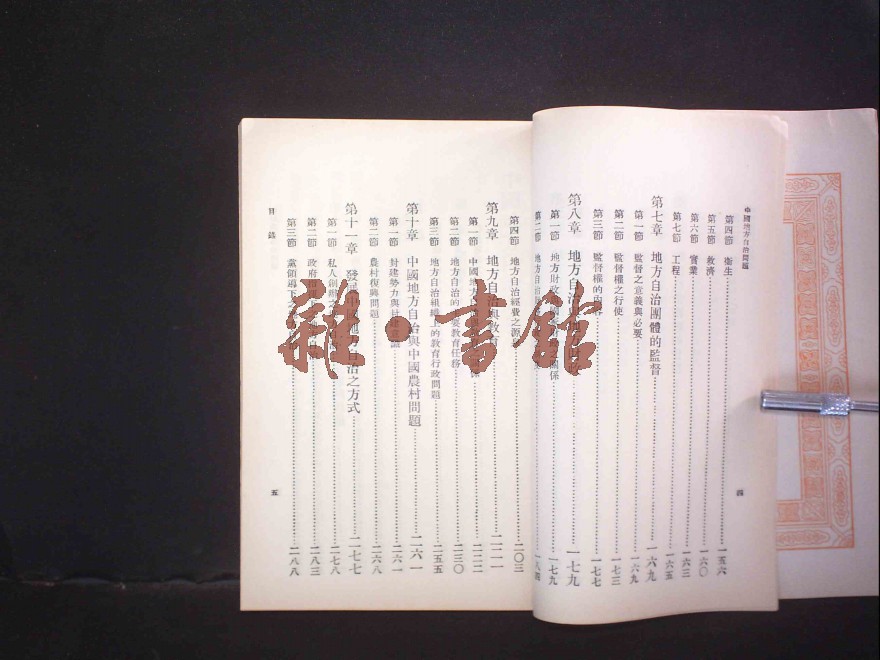 中國地方自治問題
第四節 衞生 一五六
第五節 救濟 一六〇
第六節 實業 一六三
第七節 工程 一六五
第七章 地方自治團體的監督 一六九
第一節 監督之意義與必要 一六九
第二節 監督權之行使 一七三
第三節 監督權的內容 一七七
第八章 地方自治 一七九
第一節 地方財政 關係 一七九
第二節 地方自治 一八四
四
第四節 地方自治經費之源 二〇三
第九章 地方自治與教育 二二一
第一節 中國地方 二二二
第二節 地方自治的 要教育任務 二三〇
第三節 地方自治組織上的教育行政問題 二五五
第十章 中國地方自治與中國農村問題 二六一
第一節 封建勢力與 二六一
第二節 農村復興問題 二六八
第十一章 發展中國地方自治之方式 二七七
第一節 私人創辦之 二七八
第二節 政府 二八三
第三節 黨領導下之 二八八
目錄
五
雜·書館